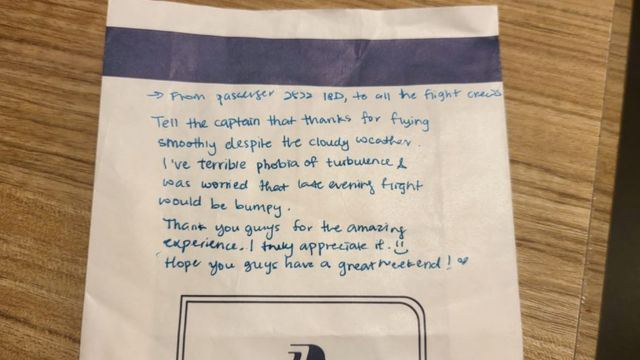 → From passenger 2522 18D, to all the flight crews
Tell the captain that thanks for flying
smoothly despite the cloudy weather.
I've terrible phobia of turbulence &
was worried that late evening flight
would be bumpy.
Thank you guys for the amazing
experience. I truly appreciate it. :)
Hope you guys have a great weekend! ♥